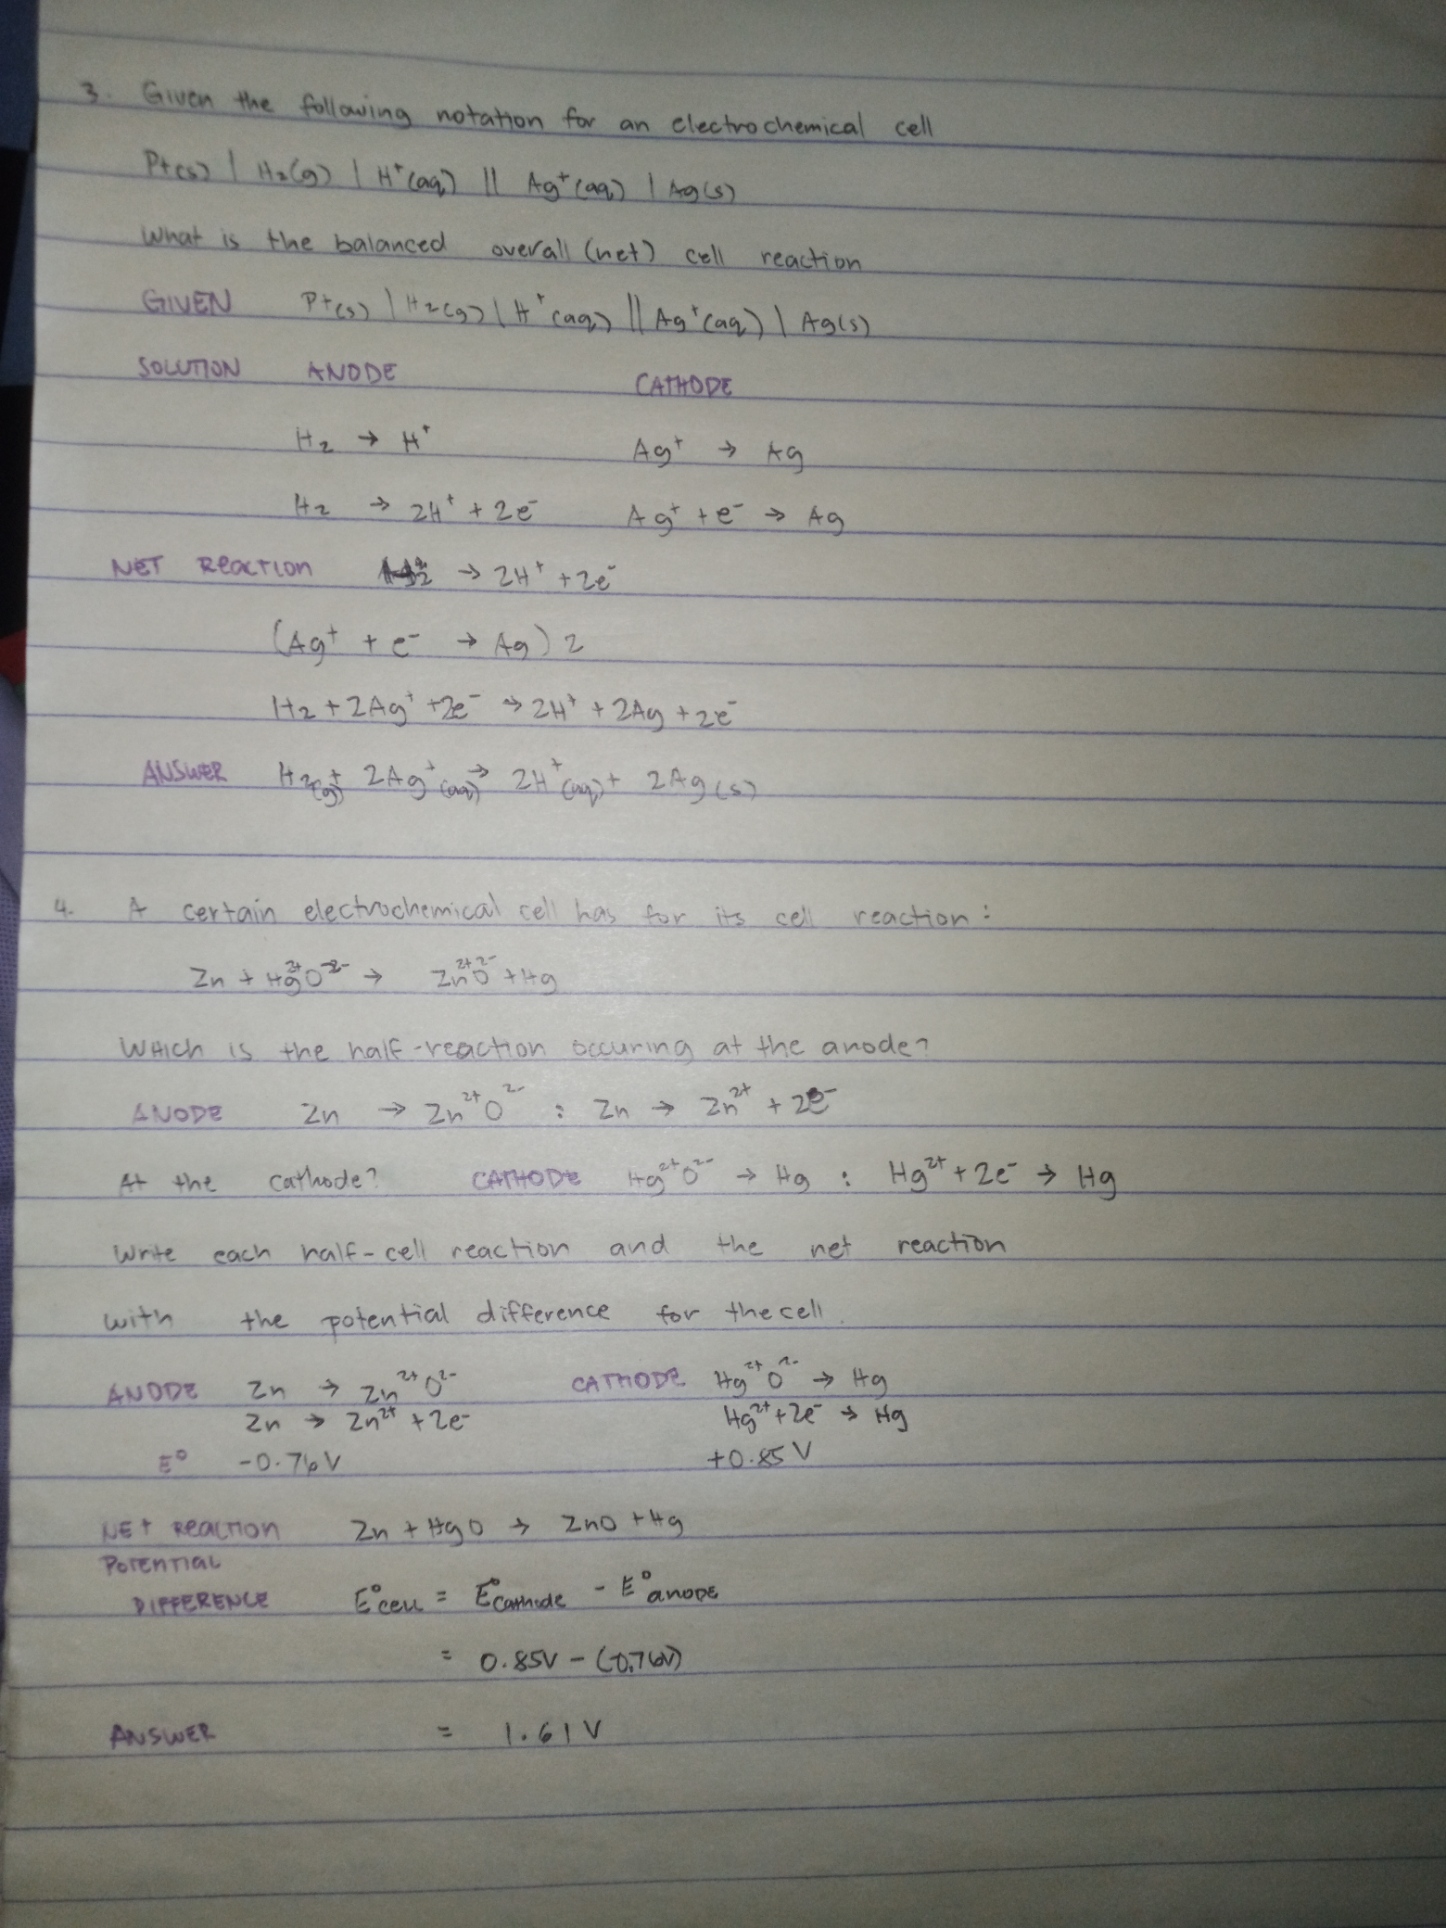 3. Given the following notation for an electrochemical cell
Pt(s) | H₂(g) | H⁺(aq) || Ag⁺(aq) | Ag(s)
What is the balanced overall (net) cell reaction
GIVEN Pt(s) | H₂(g) | H⁺(aq) || Ag⁺(aq) | Ag(s)
SOLUTION ANODE CATHODE
H₂ → H⁺ Ag⁺ → Ag
H₂ → 2H⁺ + 2e⁻ Ag⁺ + e⁻ → Ag
NET REACTION H₂ → 2H⁺ + 2e⁻
(Ag⁺ + e⁻ → Ag) 2
H₂ + 2Ag⁺ + 2e⁻ → 2H⁺ + 2Ag + 2e⁻
ANSWER H₂(g) + 2Ag⁺(aq) → 2H⁺(aq) + 2Ag(s)
4. A certain electrochemical cell has for its cell reaction:
Zn + Hg²⁺O²⁻ → Zn²⁺O²⁻ + Hg
Which is the half-reaction occuring at the anode?
ANODE Zn → Zn²⁺O²⁻ : Zn → Zn²⁺ + 2e⁻
At the cathode? CATHODE Hg²⁺O²⁻ → Hg : Hg²⁺ + 2e⁻ → Hg
Write each half-cell reaction and the net reaction
with the potential difference for the cell.
ANODE Zn → Zn²⁺O²⁻ CATHODE Hg²⁺O²⁻ → Hg
Zn → Zn²⁺ + 2e⁻ Hg²⁺ + 2e⁻ → Hg
E° -0.76V +0.85V
NET REACTION Zn + HgO → ZnO + Hg
POTENTIAL
DIFFERENCE E°cell = E°cathode - E°anode
= 0.85V - (-0.76V)
ANSWER = 1.61V